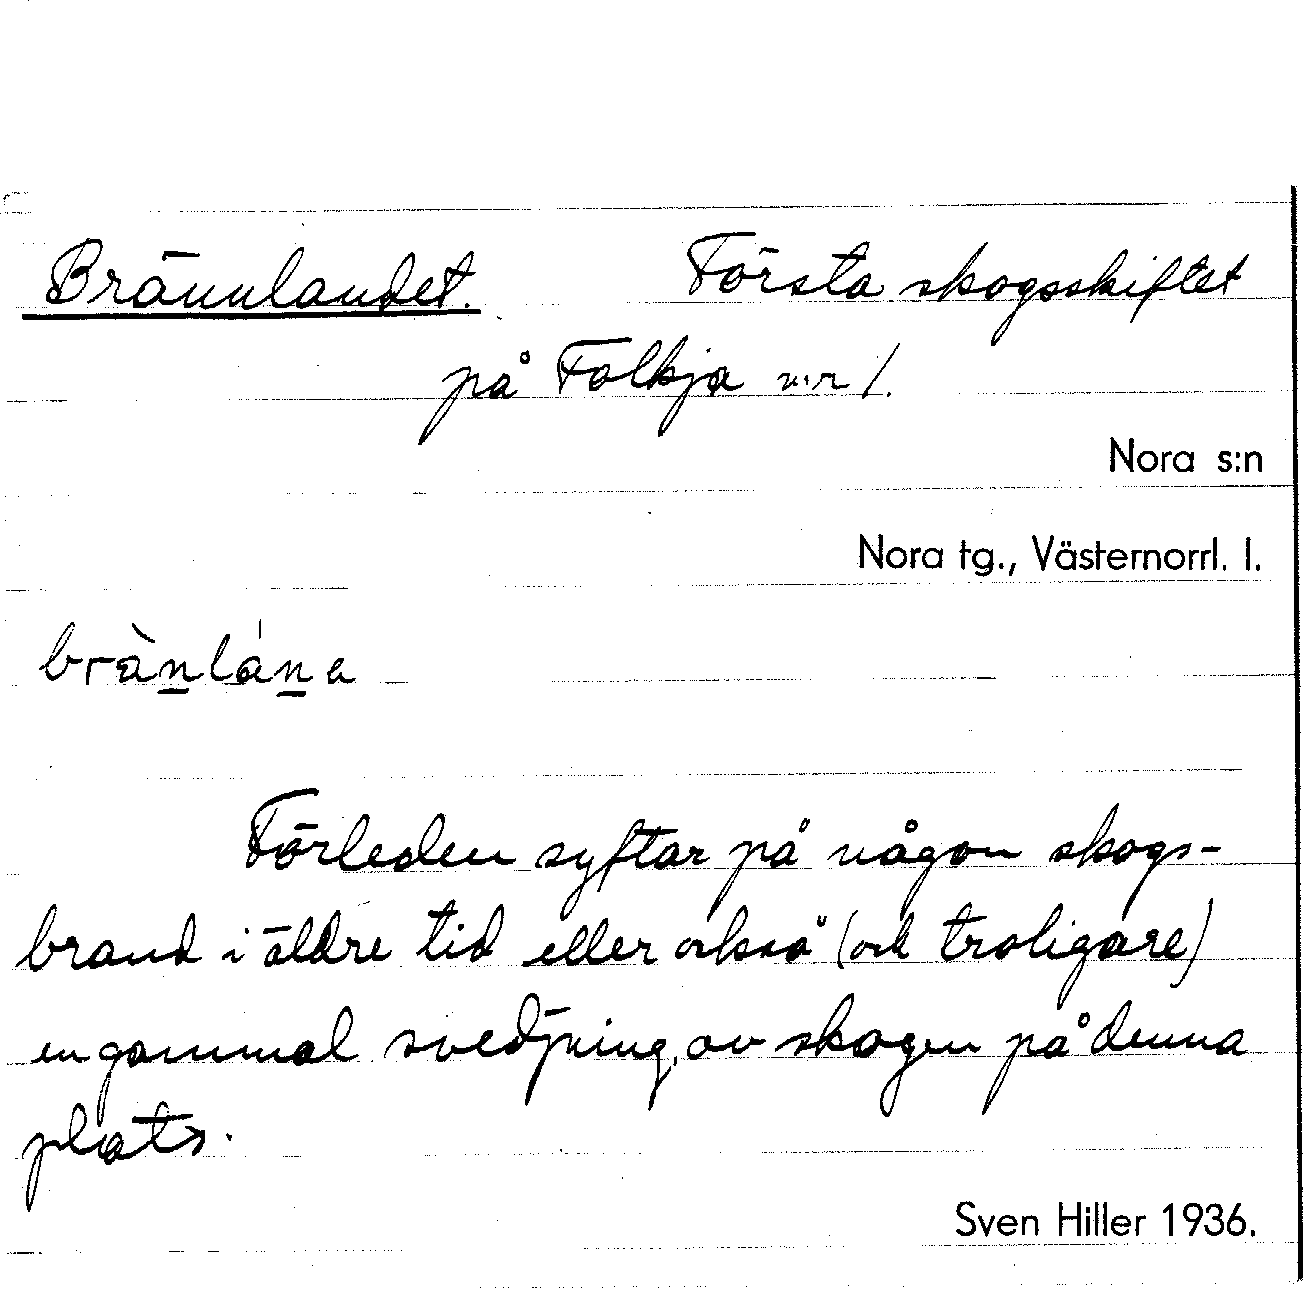 Brännlandet. Första skogsskiftet
på Folkja n:r 1.
Nora s:n
Nora tg., Västernorrl. l.
brä̀nlána
Förleden syftar på någon skogs-
brand i äldre tid eller också (och troligare)
en gammal svedjning, av skogen på denna
plats.
Sven Hiller 1936.